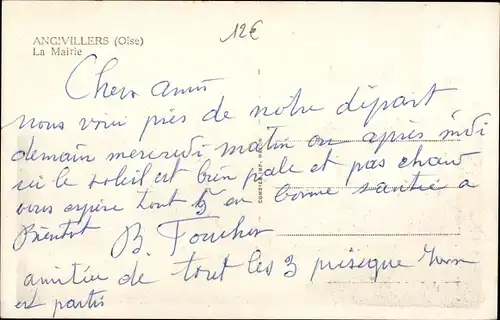 12€
ANGIVILLERS (Oise)
La Mairie
Chers amis
nous voici près de notre départ
demain mercredi matin ou après midi
ici le soleil est bien pale et pas chaud
vous espère tout 5 en bonne santée a
Bientot B. Foucher
amitiée de tout les 3 puisque
est partis